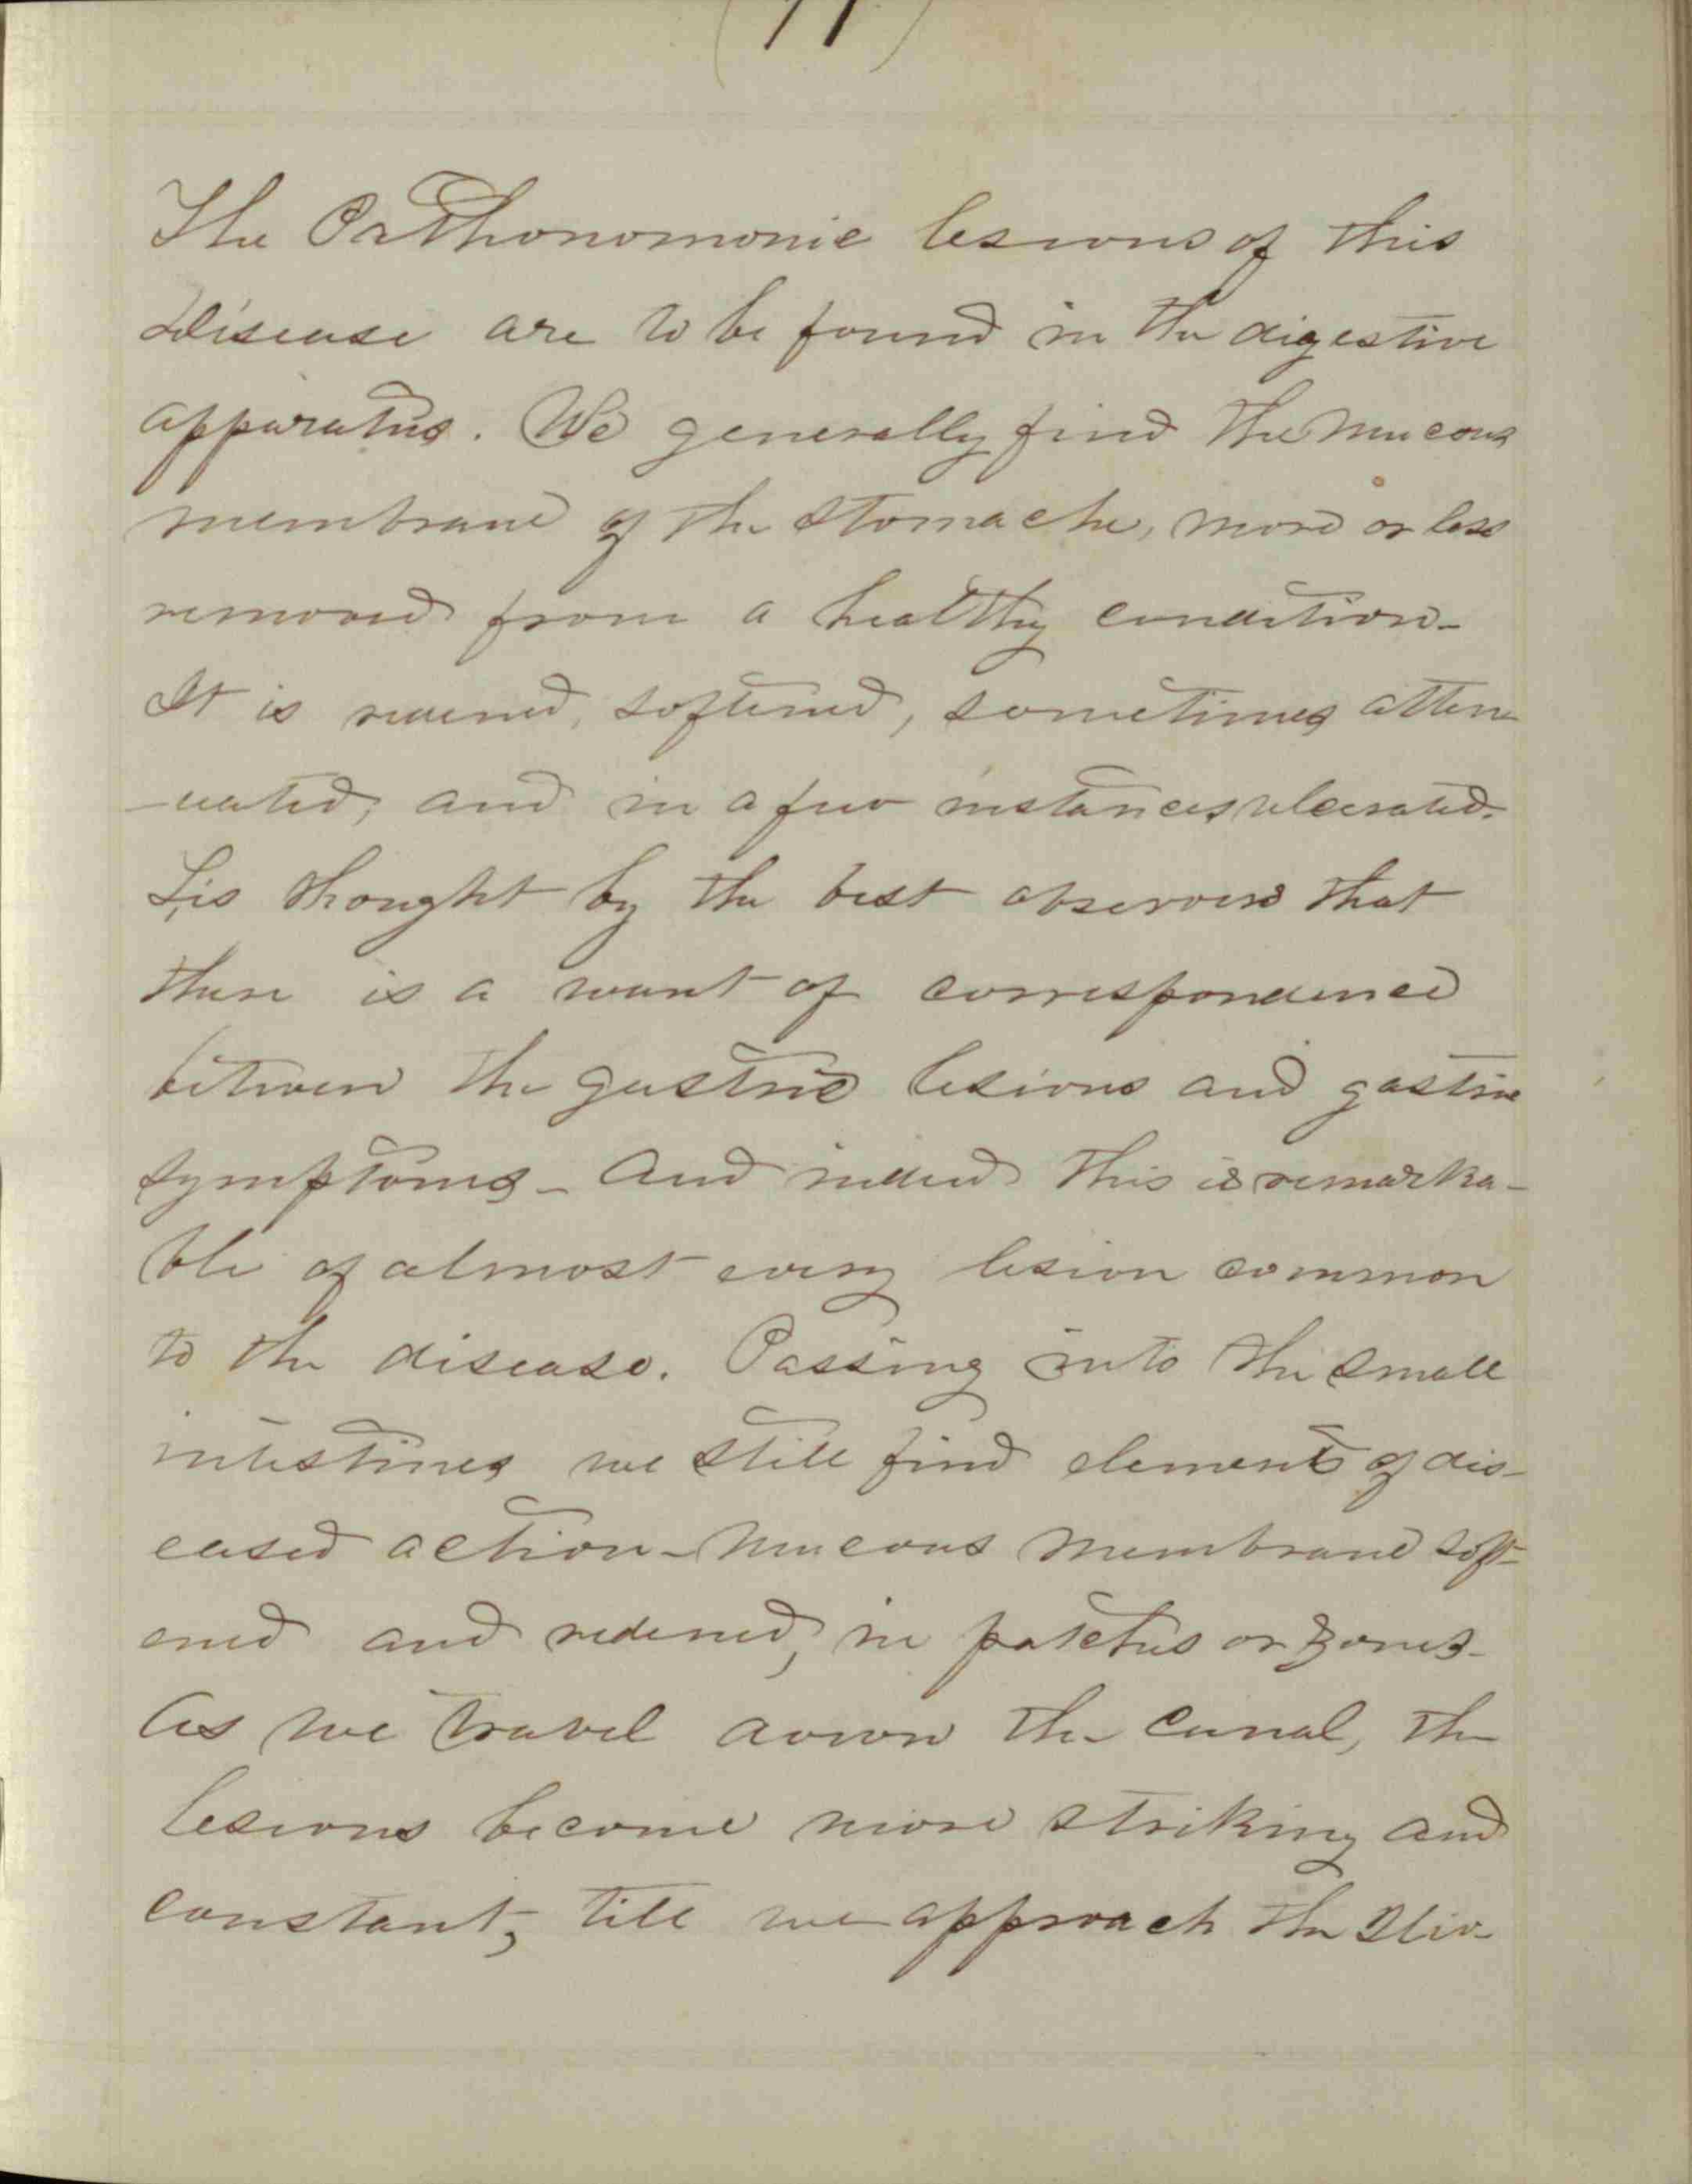 The Pathonomonic lesions of this
Disease are to be found in the digestive
apparatus. We generally find the mucous
membrane of the stomache, more or less
removed from a healthy condition-
It is redened, softened, sometimes atten
-uated, and in a few instances ulcerated.
Tis thought by the best observers that
there is a want of correspondence
between the gastric lesions and gastric
symptoms - And indeed this is remarka-
ble of almost every lesion common
to the disease. Passing into the small
intestines we still find elements of dis-
eased action - Mucous membrane soft-
ened and redened, in patches or zones-
As we travel down the canal, the
lesions become more striking and
constant, till we approach the Ilio-